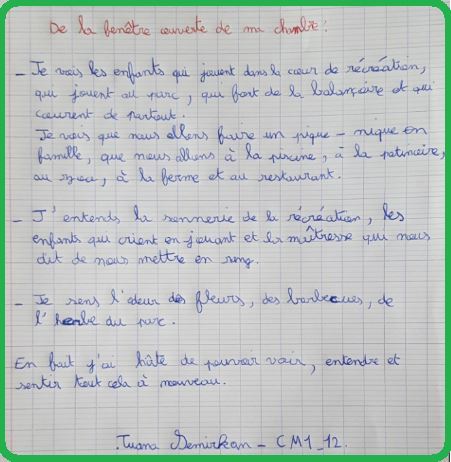 De la fenêtre ouverte de ma chambre :
- Je vois les enfants qui jouent dans la cour de récréation,
qui jouent au parc, qui font de la balançoire et qui
courent de partout.
Je vois que nous allons faire un pique-nique en
famille, que nous allons à la piscine, à la patinoire,
au zoo, à la ferme et au restaurant.
- J'entends la sonnerie de la récréation, les
enfants qui crient en jouant et la maîtresse qui nous
dit de nous mettre en rang.
- Je sens l'odeur des fleurs, des barbecues, de
l'herbe du parc.
En fait j'ai hâte de pouvoir voir, entendre et
sentir tout cela à nouveau.
Tuana Demirkan - CM1_12.